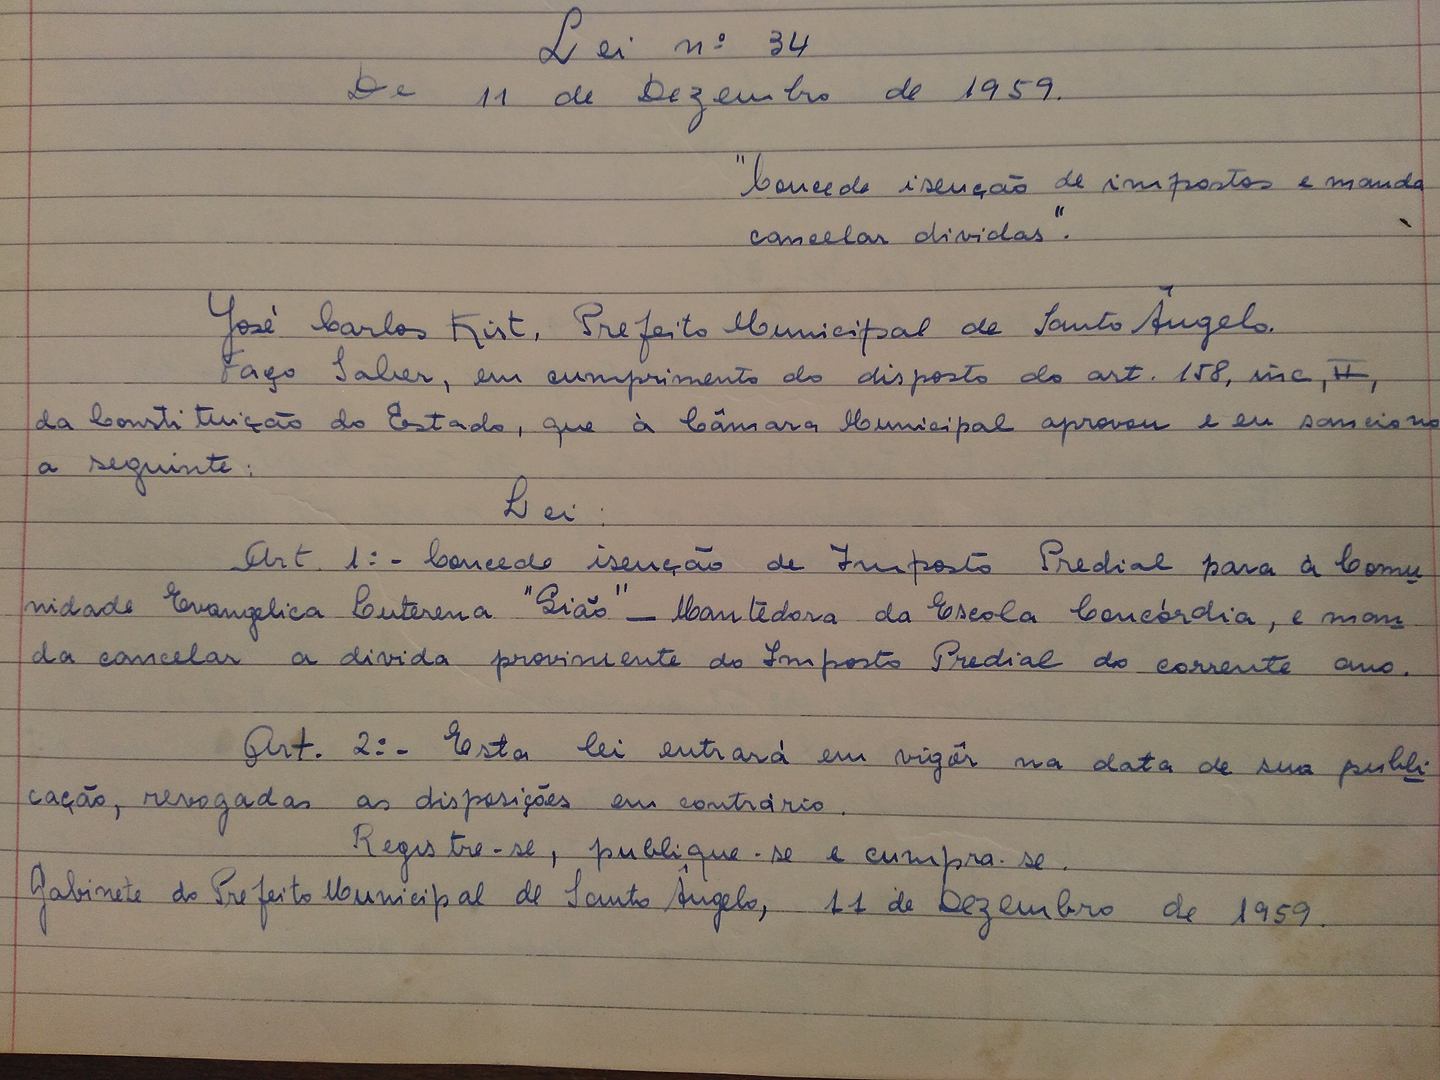 Lei nº 34
De 11 de Dezembro de 1959.
"Concede isenção de impostos e manda
cancelar dividas".
José Carlos Kist, Prefeito Municipal de Santo Ângelo.
Faço Saber, em cumprimento do disposto do art. 158, inc, II,
da Constituição do Estado, que à Câmara Municipal aprovou e eu sanciono
a seguinte:
Lei:
Art. 1º:- Concede isenção de Imposto Predial para à Comu
nidade Evangelica Luterena "Sião" _ Mantêdora da Escola Concórdia, e man
da cancelar a divida proviniente do Imposto Predial do corrente ano.
Art. 2º:- Esta lei entrará em vigôr na data de sua publi
cação, revogadas as disposições em contrário.
Registre-se, publique-se e cumpra-se.
Gabinete do Prefeito Municipal de Santo Ângelo, 11 de Dezembro de 1959.